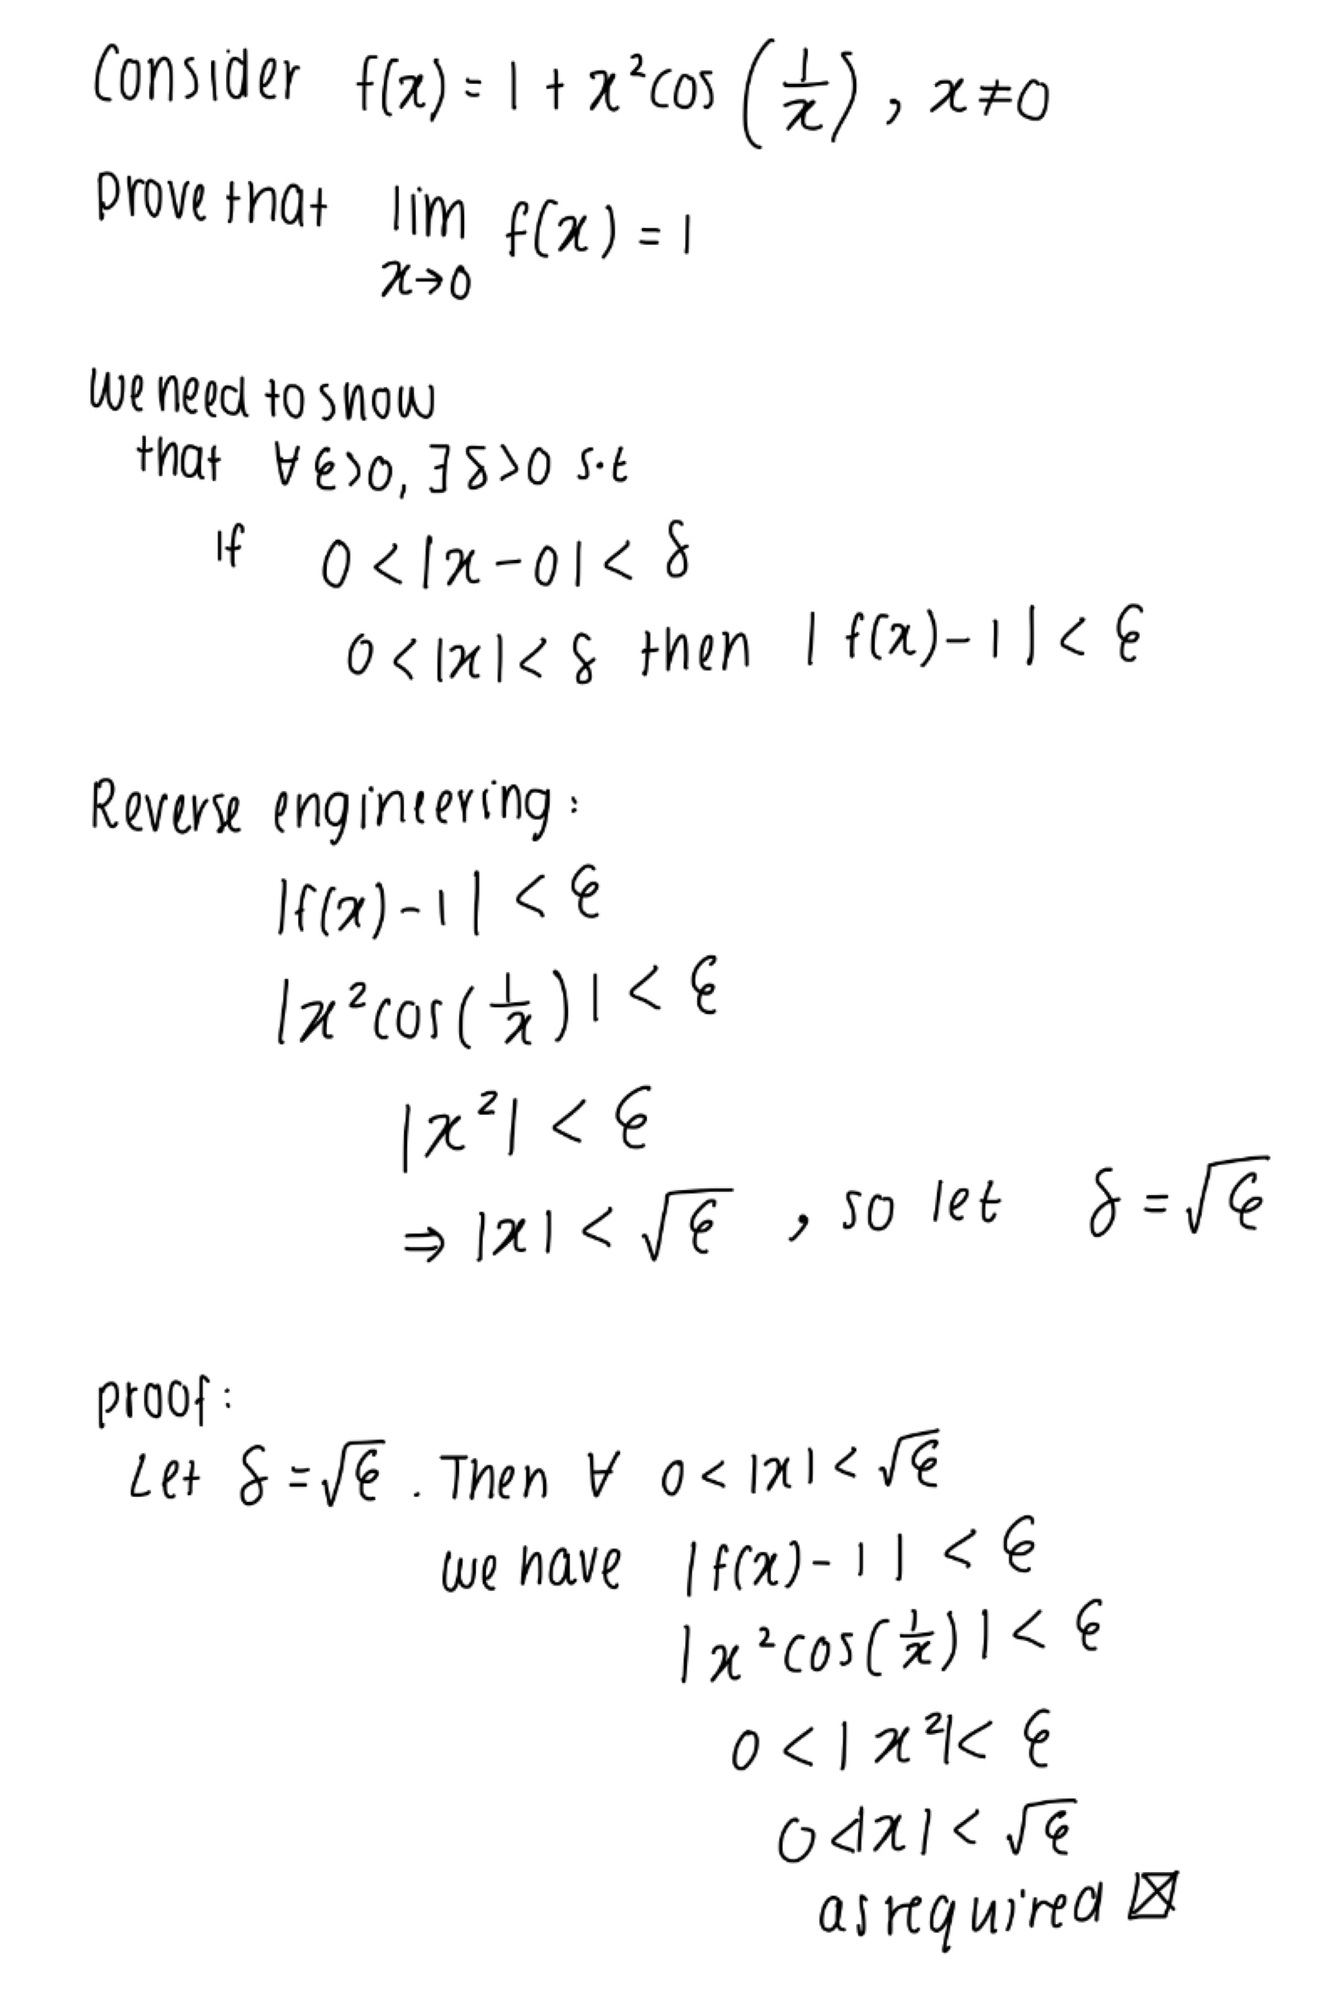 Consider f(x) = 1 + x²cos(1/x), x≠0
prove that lim x→0 f(x) = 1
we need to show
that ∀ε>0, ∃δ>0 s.t
If 0 < |x - 0| < δ
0 < |x| < δ then |f(x) - 1| < ε
Reverse engineering:
|f(x) - 1| < ε
|x²cos(1/x)| < ε
|x²| < ε
⇒ |x| < √ε, so let δ = √ε
proof:
Let δ = √ε. Then ∀ 0 < |x| < √ε
we have |f(x) - 1| < ε
|x²cos(1/x)| < ε
0 < |x²| < ε
0 < |x| < √ε
as required ☒